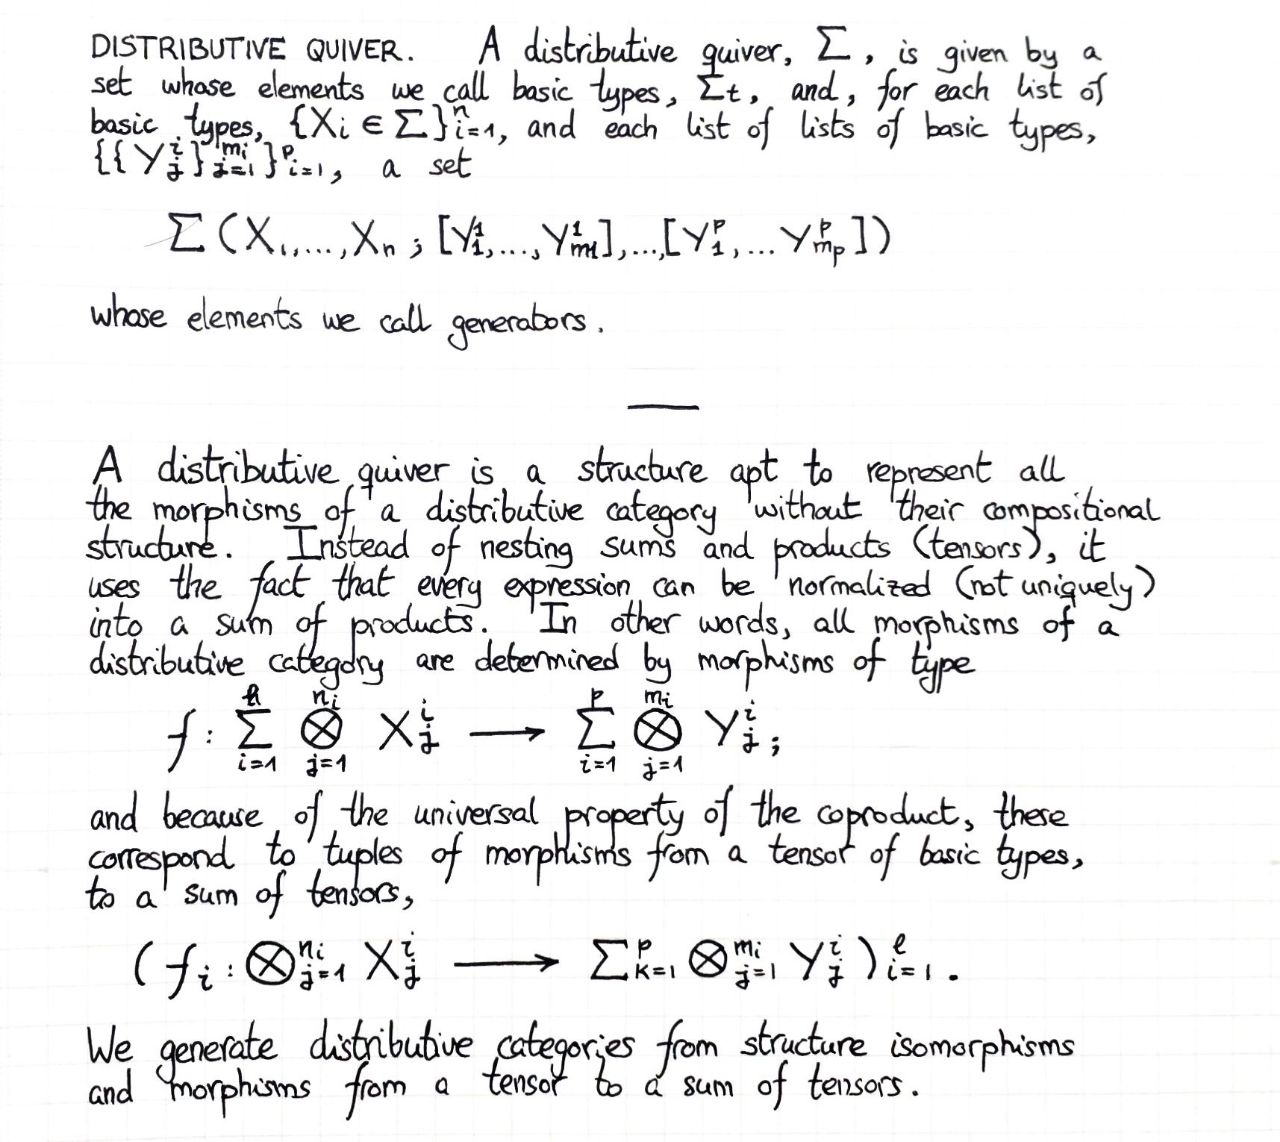 DISTRIBUTIVE QUIVER. A distributive quiver, Σ, is given by a
set whose elements we call basic types, Σt, and, for each list of
basic types, {Xi ∈ Σ}ⁿi=1, and each list of lists of basic types,
{{Y^i_j}^{m_i}_{j=1}}^p_{i=1}, a set
Σ(X₁,...,Xn; [Y^1_1,...,Y^1_{m1}],...,[Y^p_1,...Y^p_{mp}])
whose elements we call generators.
A distributive quiver is a structure apt to represent all
the morphisms of a distributive category without their compositional
structure. Instead of nesting sums and products (tensors), it
uses the fact that every expression can be normalized (not uniquely)
into a sum of products. In other words, all morphisms of a
distributive category are determined by morphisms of type
f : Σ^ℓ_{i=1} ⊗^{n_i}_{j=1} X^i_j ⟶ Σ^p_{i=1} ⊗^{m_i}_{j=1} Y^i_j ;
and because of the universal property of the coproduct, these
correspond to tuples of morphisms from a tensor of basic types,
to a sum of tensors,
(f_i : ⊗^{n_i}_{j=1} X^i_j ⟶ Σ^p_{k=1} ⊗^{m_i}_{j=1} Y^i_j)^ℓ_{i=1}.
We generate distributive categories from structure isomorphisms
and morphisms from a tensor to a sum of tensors.